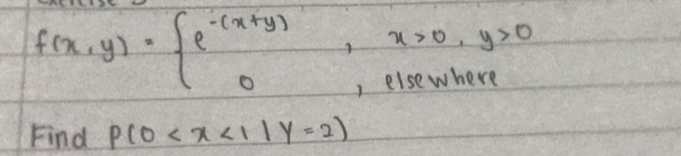 f(x,y) = { e^-(x+y) , x>0, y>0
0 , elsewhere
Find P(0 < x < 1 | Y = 2)